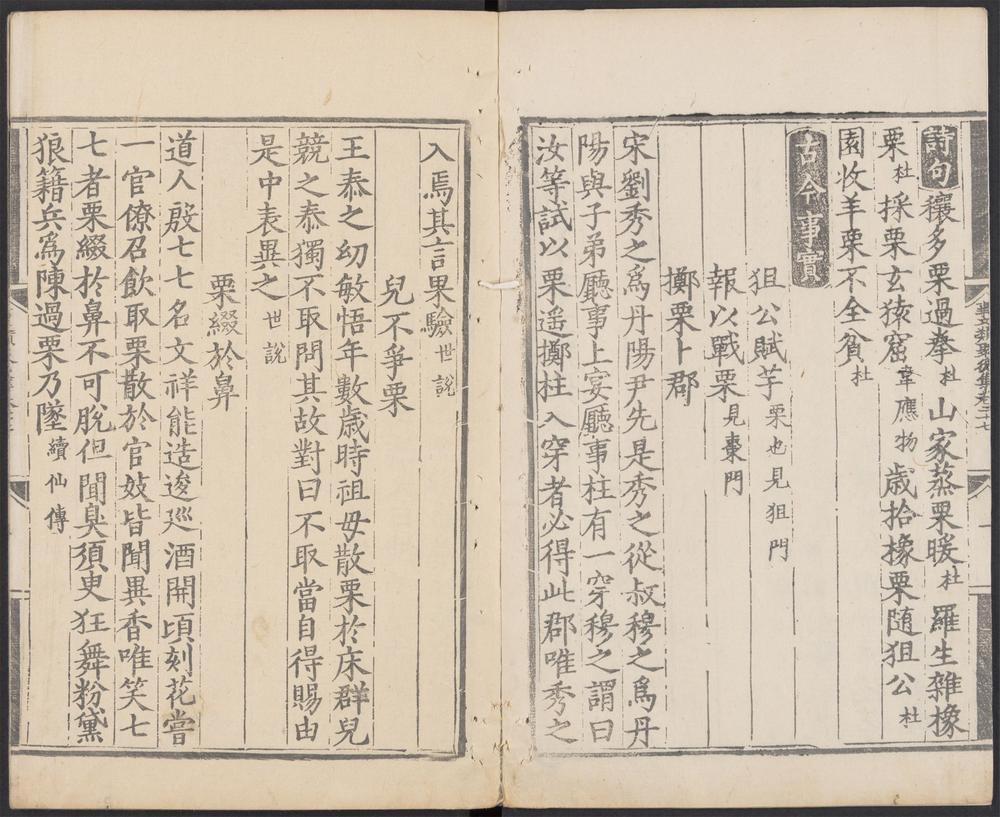 詩句穰多栗過拳杜山家蒸栗暖杜羅生雜橡
栗杜採栗玄猿窟韋應物歲拾橡栗隨狙公杜
園收羊栗不全貧杜
古今事實
狙公賦芧栗也見狙門
報以戰栗見棗門
擲栗卜郡
宋劉秀之爲丹陽尹先是秀之從叔穆之爲丹
陽與子弟廳事上宴廳事柱有一穿穆之謂曰
汝等試以栗遥擲柱入穿者必得此郡唯秀之
入焉其言果驗世說
兒不爭栗
王泰之幼敏悟年數歲時祖母散栗於床群兒
競之泰獨不取問其故對曰不取當自得賜由
是中表異之世說
栗綴於鼻
道人殷七七名文祥能造逡巡酒開頃刻花嘗
一官僚召飲取栗散於官妓皆聞異香唯笑七
七者栗綴於鼻不可脫但聞臭須臾狂舞粉黛
狼籍兵爲陳過栗乃墜續仙傳